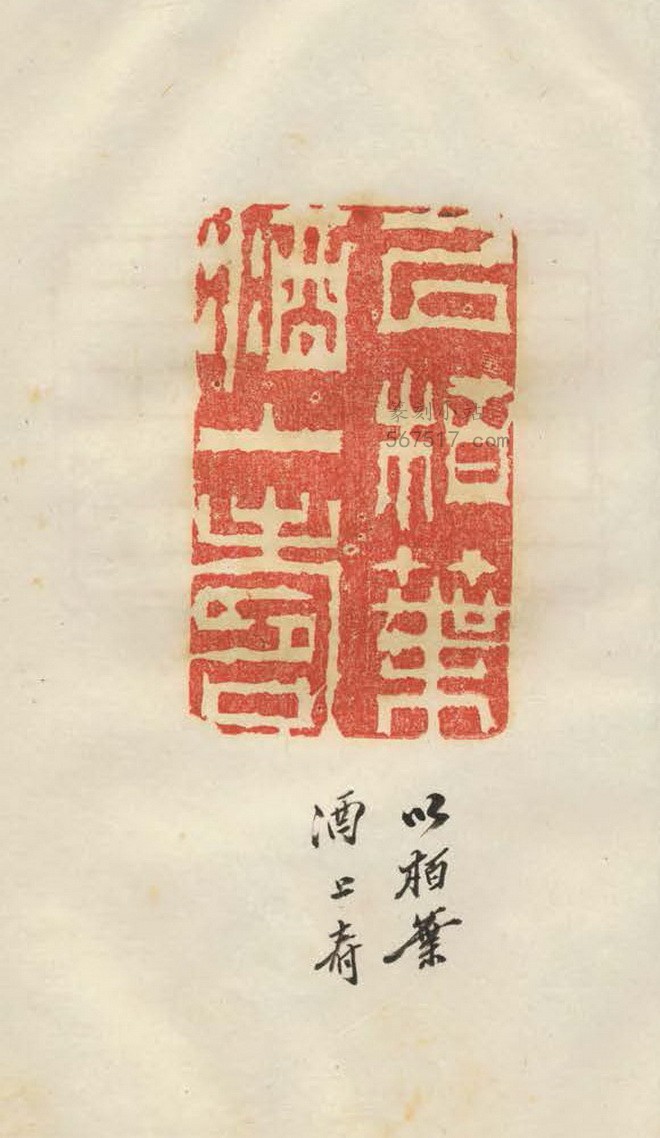 以柏葉
酒上壽
篆刻小站
567517.com
以柏葉
酒上寿